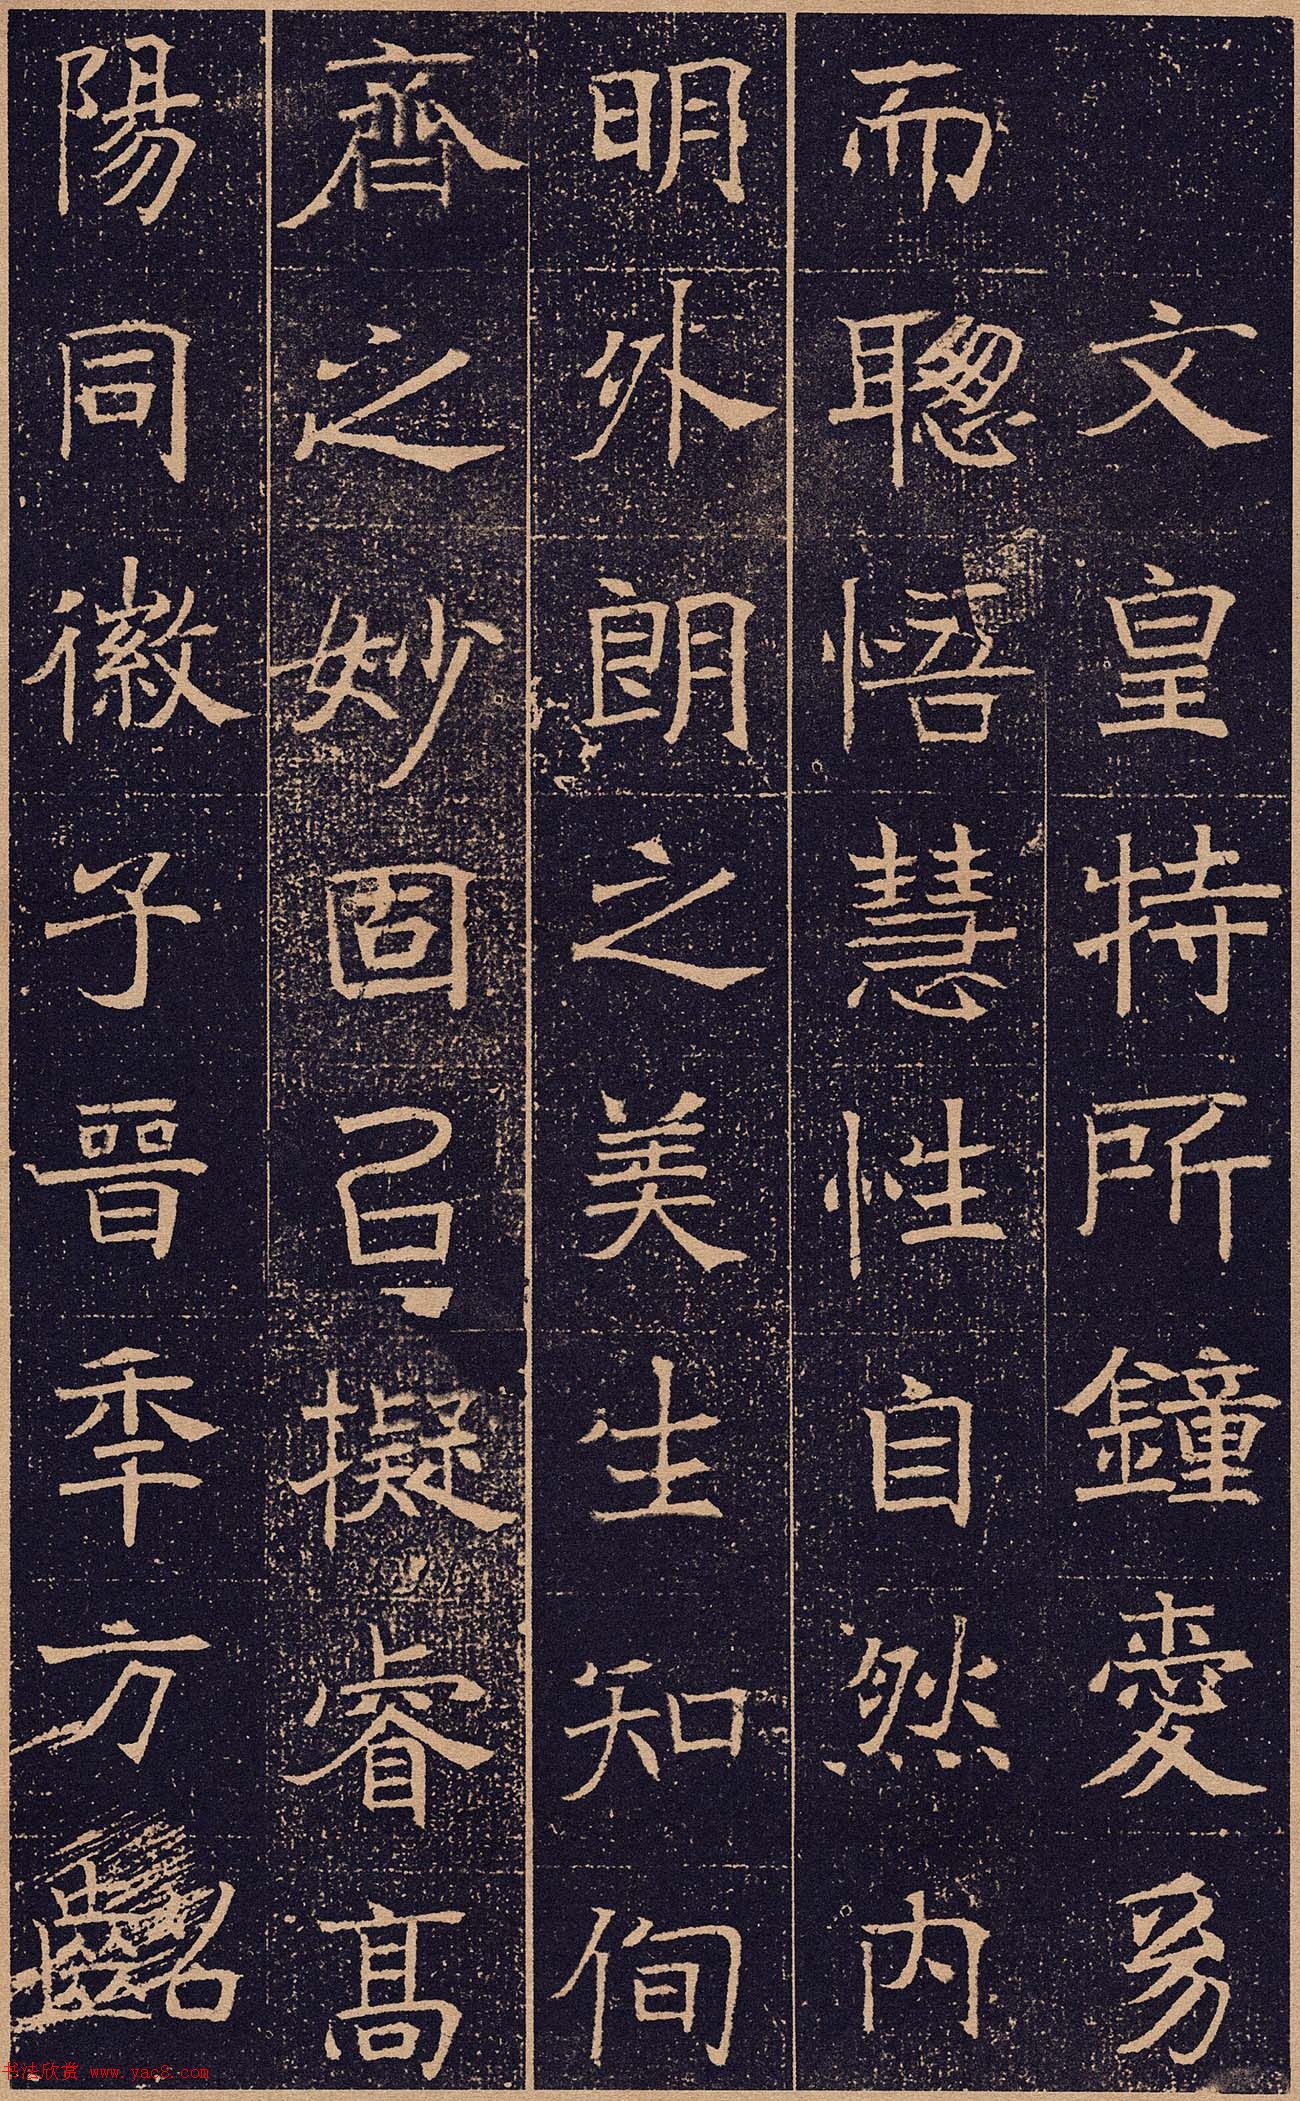 文皇特所鐘愛焉
而聰悟慧性自然內
明外朗之美生知徇
齊之妙固已擬睿高
陽同徽子晉季方齠
书法欣赏 www.yac8.com